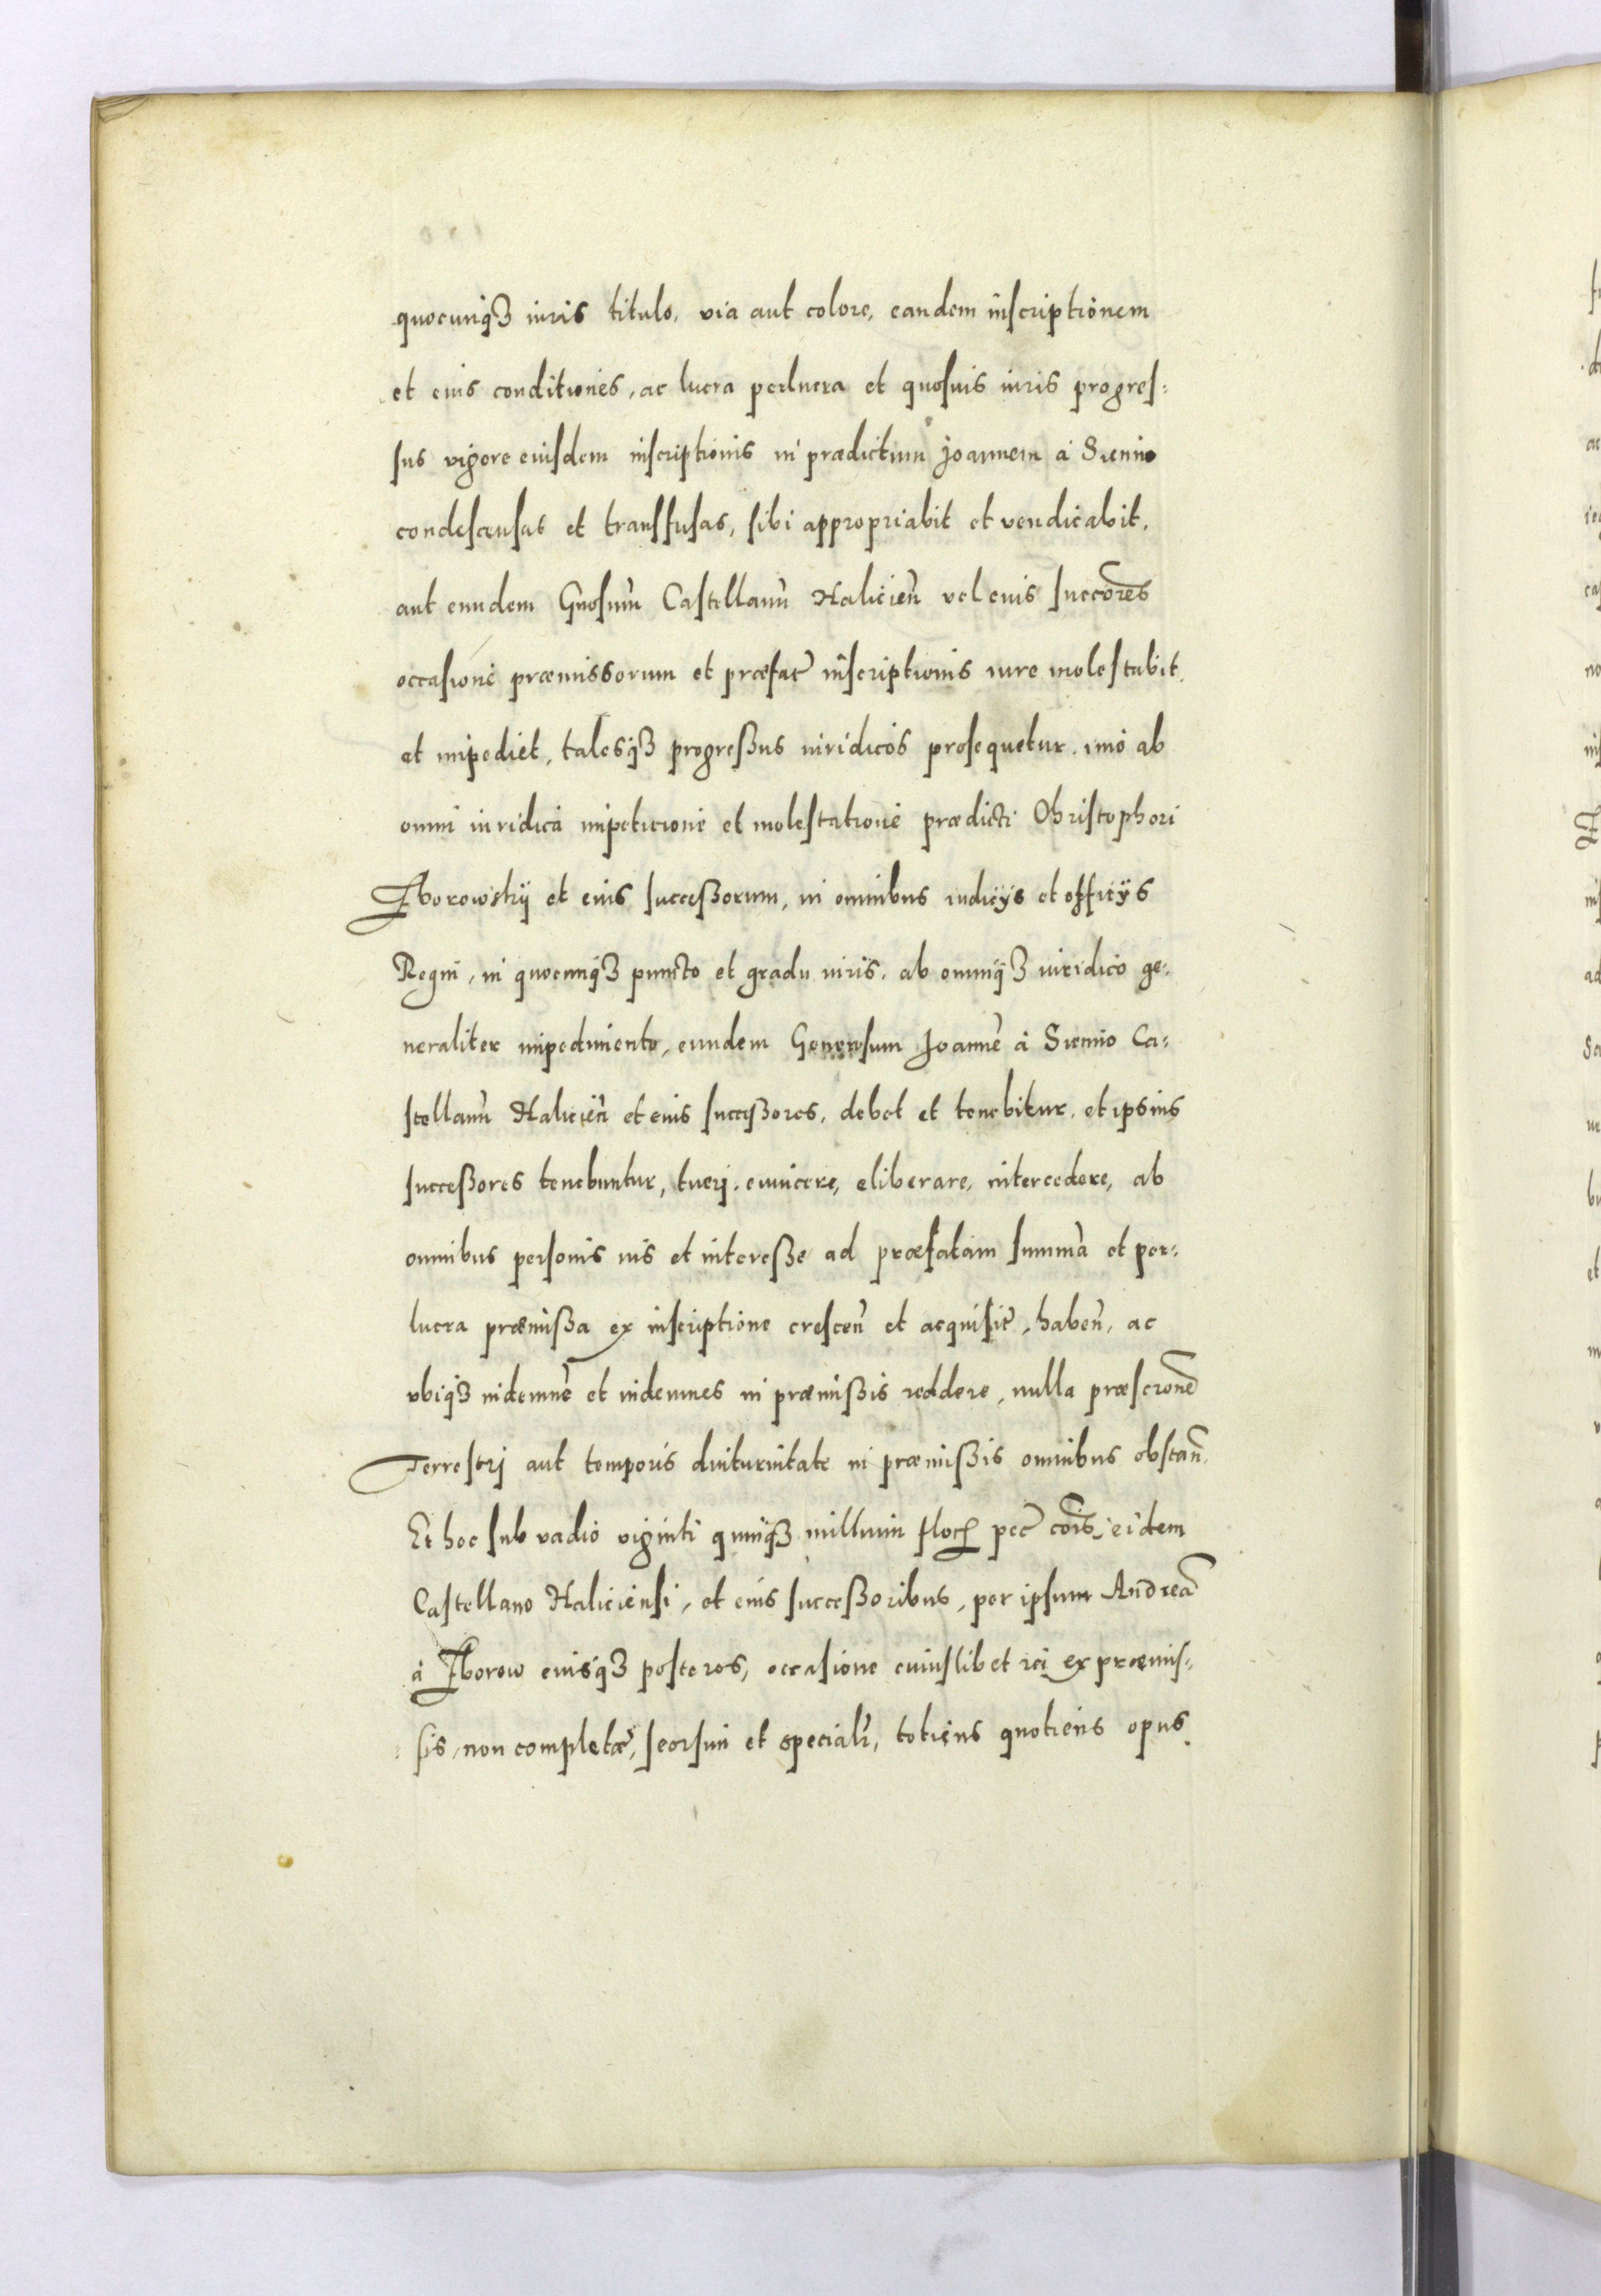 quocunq₃ iuris titulo, via aut colore, eandem inscriptionem
et eius conditiones, ac lucra perlucra et quosuis iuris progres:
sus vigore eiusdem inscriptionis in prædictum Joannem à Sienno
condescensas et transfusas, sibi appropriabit et vendicabit,
aut eundem Gnosum̃ Castellanũ Halicieñ vel eius succores̃
occasione præmissorum et præfat̃ inscriptionis iure molestabit,
et impediet, talesq₃ progreßus iuridicos prosequetur, imo ab
omni iuridica impeticione et molestatione prædicti Christophori
Zborowskÿ et eius succeßorum, in omnibus iudicÿs et officÿs
Regni, in quocunq₃ puncto et gradu iuris, ab omniq₃ iuridico ge:
neraliter impedimento, eundem Generosum Joannẽ à Sienno Ca:
stellanũ Halicieñ et eius succeßores, debet et tenebitur, et ipsius
succeßores tenebuntur, tueri, euincere, eliberare, intercedere, ab
omnibus personis ius et intereße ad præfatam summã et per:
lucra præmißa ex inscriptione cresceñ et acquisit̃, habeñ, ac
vbiq₃ indemnẽ et indemnes in præmißis reddere, nulla præscrone̅
Terrestri aut temporis diuturnitate in præmißis omnibus obstañ.
Et hoc sub vadio viginti quinq₃ millium floꝝ pec̃ coĩs, eidem
Castellano Haliciensi, et eius succeßoribus, per ipsum Andreã
à Zborow eiusq₃ posteros, occasione cuiuslibet rei ex præmis:
sis, non completæ, seorsim et specialr̃, totiens quotiens opus